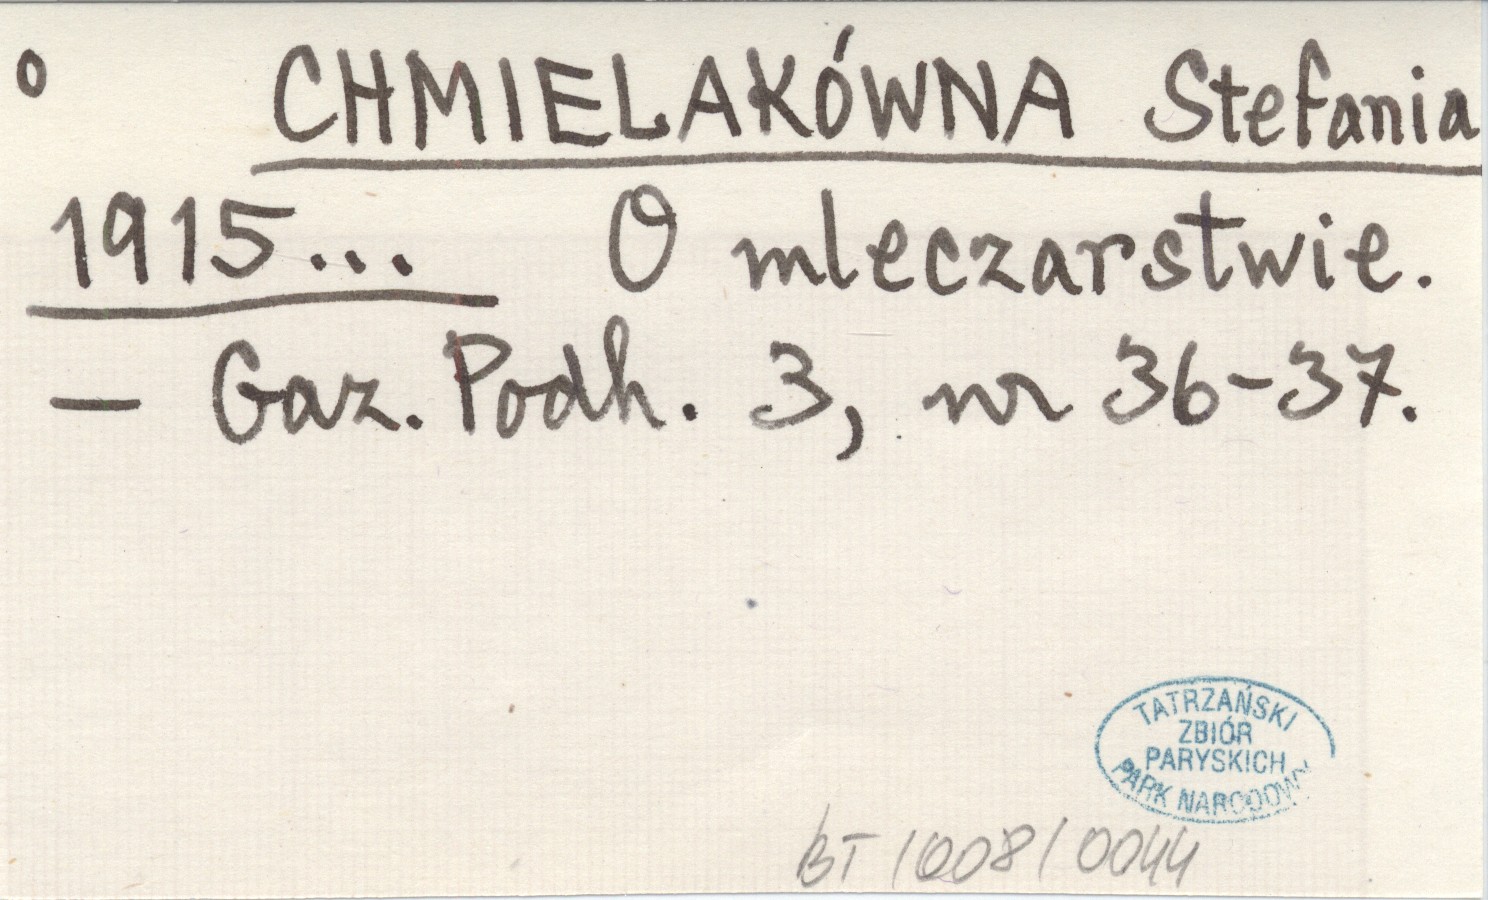 o CHMIELAKÓWNA Stefania
1915... O mleczarstwie.
— Gaz. Podh. 3, nr 36-37.
TATRZAŃSKI
ZBIÓR
PARYSKICH
PARK NARODOWY
BT/008/0044